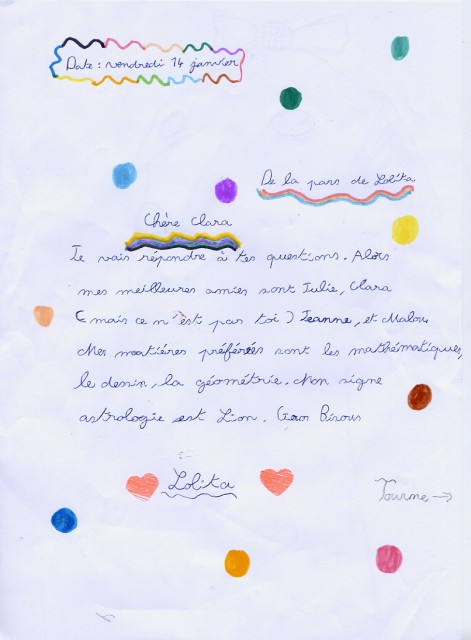 Date : vendredi 14 janvier
De la pars de Lolita
Chère Clara
Je vais répondre à tes questions. Alors
mes meilleures amies sont Julie, Clara
(mais ce n'est pas toi) Jeanne, et Malou.
Mes matiéres préférées sont les mathématiques,
le dessin, la géométrie. Mon signe
astrologie est Lion. Gros Bisous
Lolita
Tourne →